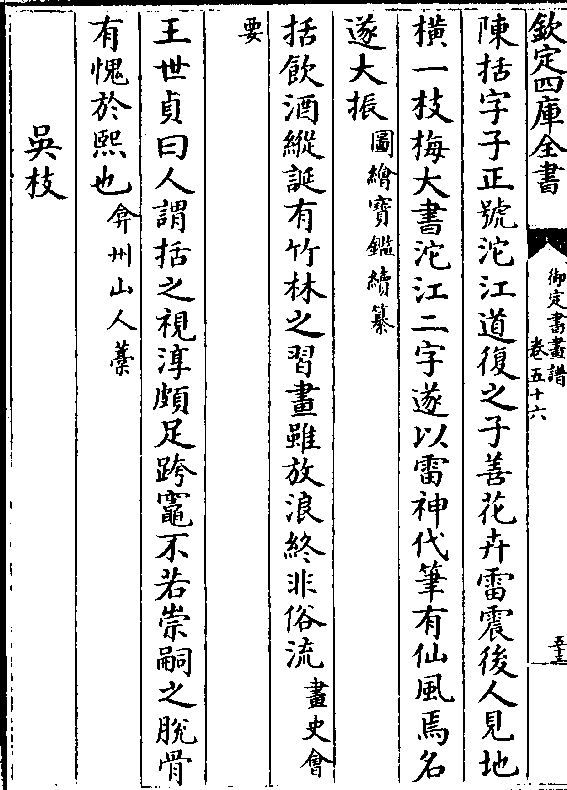 欽定四庫全書
御定書畫譜
卷五十六
五十三
陳括字子正號沱江道復之子善花卉雷震後人見地
橫一枝梅大書沱江二字遂以雷神代筆有仙風焉名
遂大振圖繪寶鑑續纂
括飲酒縱誕有竹林之習畫雖放浪終非俗流畫史會
要
王世貞曰人謂括之視淳頗足跨竈不若崇嗣之脫骨
有愧於熙也弇州山人藁
吳枝